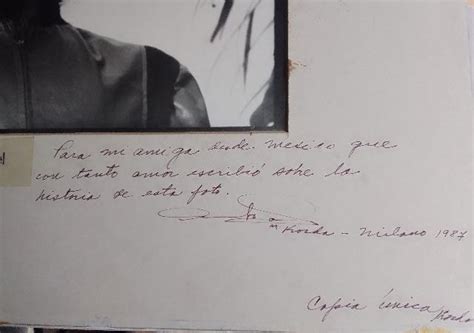 Para mi amiga desde mexico que
con tanto amor escribió sobre la
historia de esta foto.
Korda - Milano 1987
Copia única
Korda